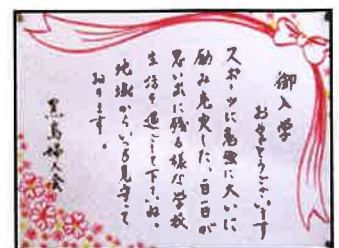 御入学
おめでとうございます
スポーツに勉強に大いに
励み充実した、毎日が
思い出に残る様な学校
生活を過ごして下さいね。
地域からいつも見守って
おります。
黒島婦人会